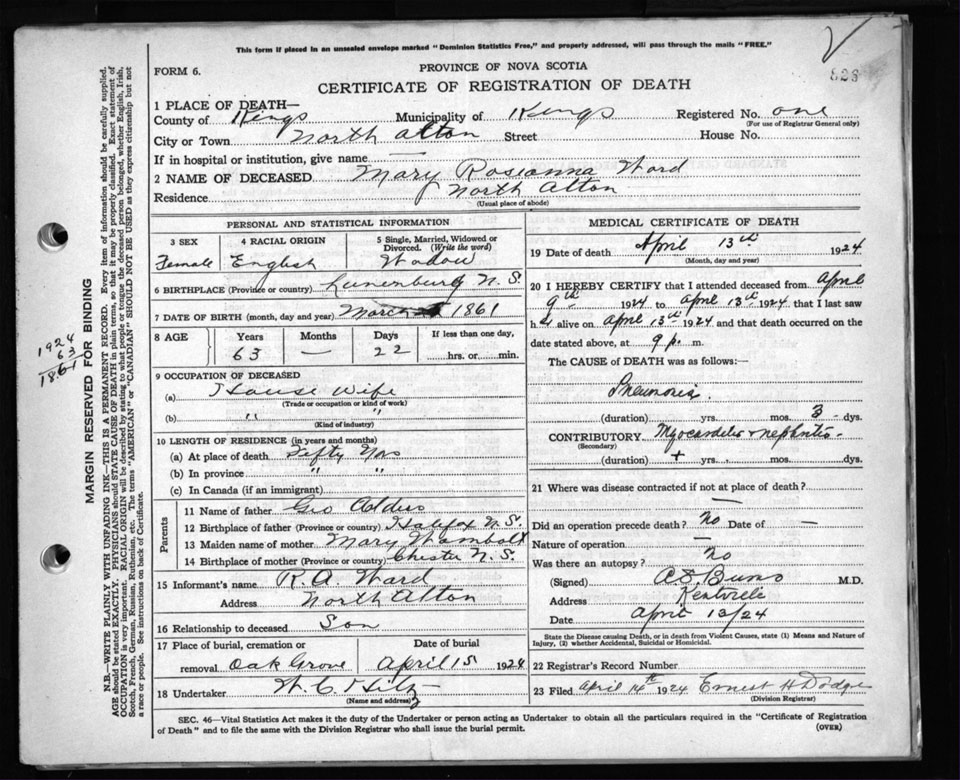 This form if placed in an unsealed envelope marked "Dominion Statistics Free," and properly addressed, will pass through the mails "FREE."
828
PROVINCE OF NOVA SCOTIA
FORM 6.
CERTIFICATE OF REGISTRATION OF DEATH
1 PLACE OF DEATH—
County of Kings Municipality of Kings Registered No. one
(For use of Registrar General only)
City or Town North Alton Street House No.
If in hospital or institution, give name —
2 NAME OF DECEASED Mary Roseanna Ward
Residence North Alton
(Usual place of abode)
PERSONAL AND STATISTICAL INFORMATION
3 SEX 4 RACIAL ORIGIN 5 Single, Married, Widowed or Divorced. (Write the word)
Female English Widow
6 BIRTHPLACE (Province or country) Lunenburg N.S.
7 DATE OF BIRTH (month, day and year) March 1861
8 AGE Years Months Days If less than one day,
63 — 22 hrs. or min.
9 OCCUPATION OF DECEASED
(a) House Wife
(Trade or occupation or kind of work)
(b) " "
(Kind of industry)
10 LENGTH OF RESIDENCE (in years and months)
(a) At place of death Fifty Yrs
(b) In province " "
(c) In Canada (if an immigrant)
Parents
11 Name of father Geo
12 Birthplace of father (Province or country) Halifax N.S.
13 Maiden name of mother Mary Wambolt
14 Birthplace of mother (Province or Country) Chester N.S.
15 Informant's name R.A. Ward
Address North Alton
16 Relationship to deceased Son
17 Place of burial, cremation or removal Oak Grove Date of burial April 15 1924
18 Undertaker W.C. Hiltz
(Name and address)
MEDICAL CERTIFICATE OF DEATH
19 Date of death April 13th 1924
(Month, day and year)
20 I HEREBY CERTIFY that I attended deceased from April
9th 1924 to April 13th 1924 that I last saw
h alive on April 13th 1924 and that death occurred on the
date stated above, at 9 p. m.
The CAUSE of DEATH was as follows:—
Pneumonia.
(duration) yrs. mos. 3 dys.
CONTRIBUTORY Myocarditis + nephritis
(Secondary)
(duration) + yrs. mos. dys.
21 Where was disease contracted if not at place of death?
—
Did an operation precede death? No Date of —
Nature of operation —
Was there an autopsy? No
(Signed) M.D.
Address Kentville
Date April 13/24
State the Disease causing Death, or in death from Violent Causes, state (1) Means and Nature of Injury, (2) whether Accidental, Suicidal or Homicidal.
22 Registrar's Record Number
23 Filed April 14th 1924 Ernest H Dodge
(Division Registrar)
SEC. 46—Vital Statistics Act makes it the duty of the Undertaker or person acting as Undertaker to obtain all the particulars required in the "Certificate of Registration
of Death" and to file the same with the Division Registrar who shall issue the burial permit.
(OVER)
1924
63
1861
MARGIN RESERVED FOR BINDING
N.B.—WRITE PLAINLY WITH UNFADING INK—THIS IS A PERMANENT RECORD. Every item of information should be carefully supplied.
AGE should be stated EXACTLY. PHYSICIANS should STATE CAUSE OF DEATH in plain terms, so that it may be properly classified. Exact statement of
OCCUPATION is very important. RACIAL ORIGIN will be described by stating to what people or tongue the deceased person belonged, whether English, Irish,
Scotch, French, German, Russian, Ruthenian, etc. The terms "AMERICAN" or "CANADIAN" SHOULD NOT BE USED as they express citizenship but not
a race or people. See instructions on back of Certificate.